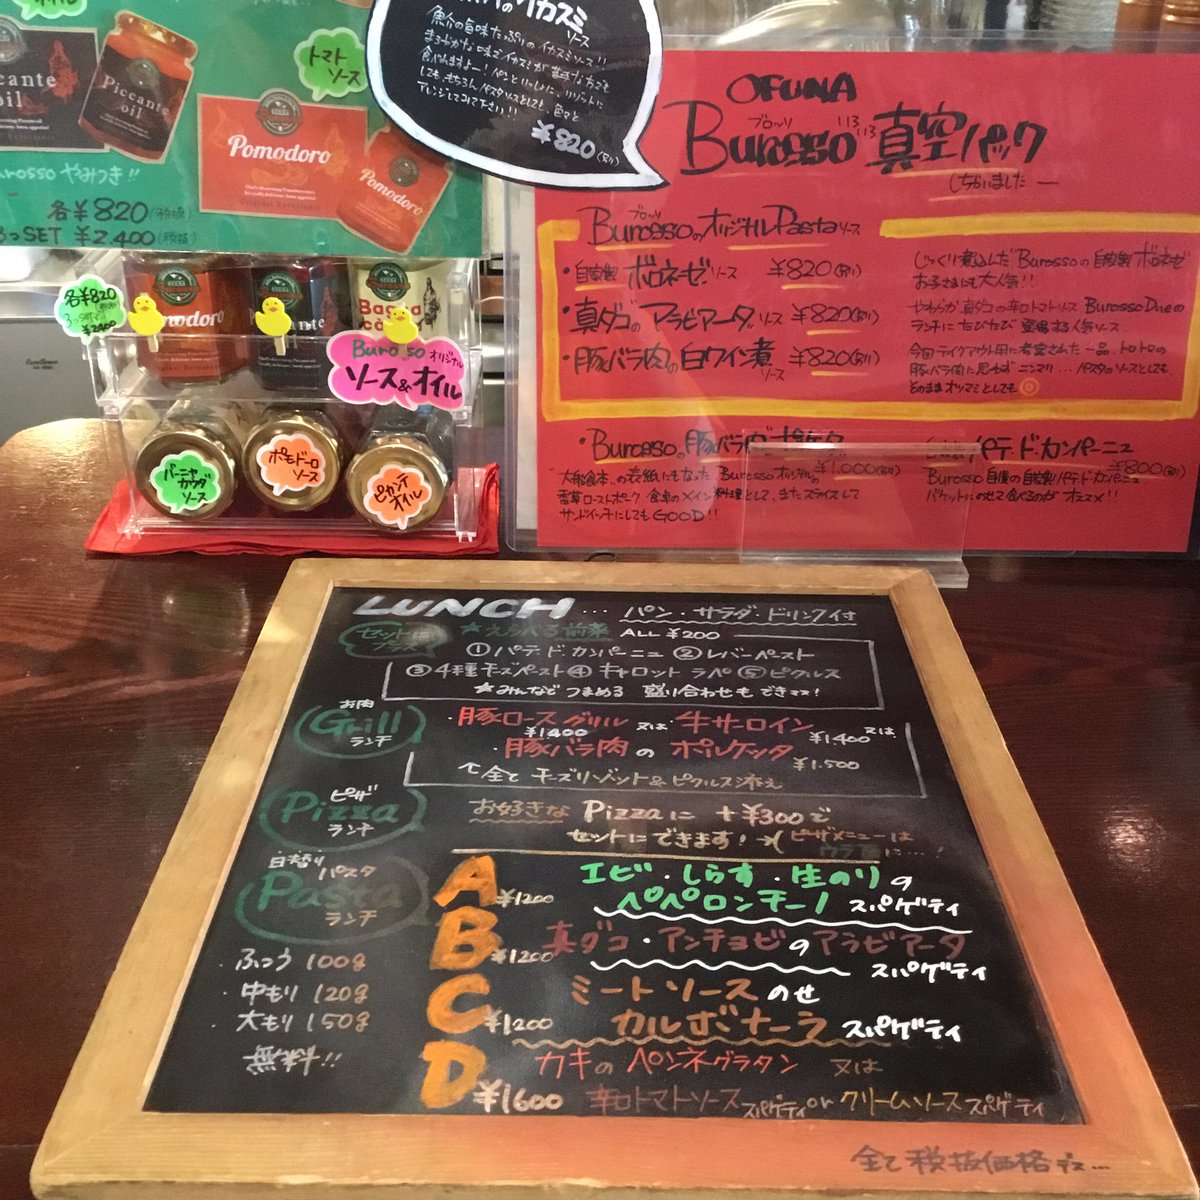 のイカスミ
ソース
魚介の旨味たっぷりのイカスミソース!!
¥820(税別)
トマト
ソース
Piccante
oil
Piccante
oil
Pomodoro
Pomodoro
Burosso やみつき!!
各¥820(税抜)
3つSET ¥2,400(税抜)
各¥820
3つSET
¥2400
Pomodoro
Piccante
Bagna
Burosso オリジナル
ソース&オイル
バーニャ
カウダ
ソース
ポモドーロ
ソース
ピカンテ
オイル
OFUNA
ブロッソ
Burosso 真空パック
ブロッソ
Burossoのオリジナル Pasta ソース
・自家製 ボロネーゼソース ¥820(税別)
じっくり煮込んだ Burossoの自家製ボロネーゼ
お子さまにも大人気!!
・真ダコのアラビアータソース ¥820(税別)
やわらか真ダコの辛口トマトソース Burosso Dueの
ランチにたびたび登場する人気ソース
・豚バラ肉の白ワイン煮ソース ¥820(税別)
今回テイクアウト用に考案された一品、トロトロの
豚バラ肉に思わずニンマリ…パスタのソースとしても
そのままオツマミとしても◎
・Burossoの豚バラ肉の
¥1,000(税別)
香草ローストポーク、食卓のメイン料理として、またスライスして
サンドイッチにしてもGOOD!!
パテ・ド・カンパーニュ
¥800(税別)
Burosso自慢の自家製パテ・ド・カンパーニュ
バゲットにのせて食べるのがオススメ!!
LUNCH … パン・サラダ・ドリンク付
セット
プラス
★えらべる前菜 ALL ¥200
①パテ・ド・カンパーニュ ②レバーペースト
③4種チーズペースト ④キャロットラペ ⑤ピクルス
★みんなでつまめる 盛り合わせもできます!
お肉
Grill
ランチ
・豚ロースグリル ¥1400 又は 牛サーロイン ¥1,400 又は
・豚バラ肉のポルケッタ ¥1,500
↑全てチーズリゾット&ピクルス添え
ピザ
Pizza
ランチ
お好きな Pizzaに +¥300で
セットにできます! (ピザメニューは
ウラ面に…!
日替り
パスタ
Pasta
ランチ
ふつう 100g
・中もり 120g
・大もり 150g
無料!!
A ¥1200 エビ・しらす・生のりの
ペペロンチーノ スパゲティ
B ¥1200 真ダコ・アンチョビのアラビアータ
スパゲティ
C ¥1200 ミートソースのせ
カルボナーラ スパゲティ
D ¥1600 カキのペンネグラタン 又は
辛口トマトソーススパゲティ or クリームソーススパゲティ
全て税抜価格デス…